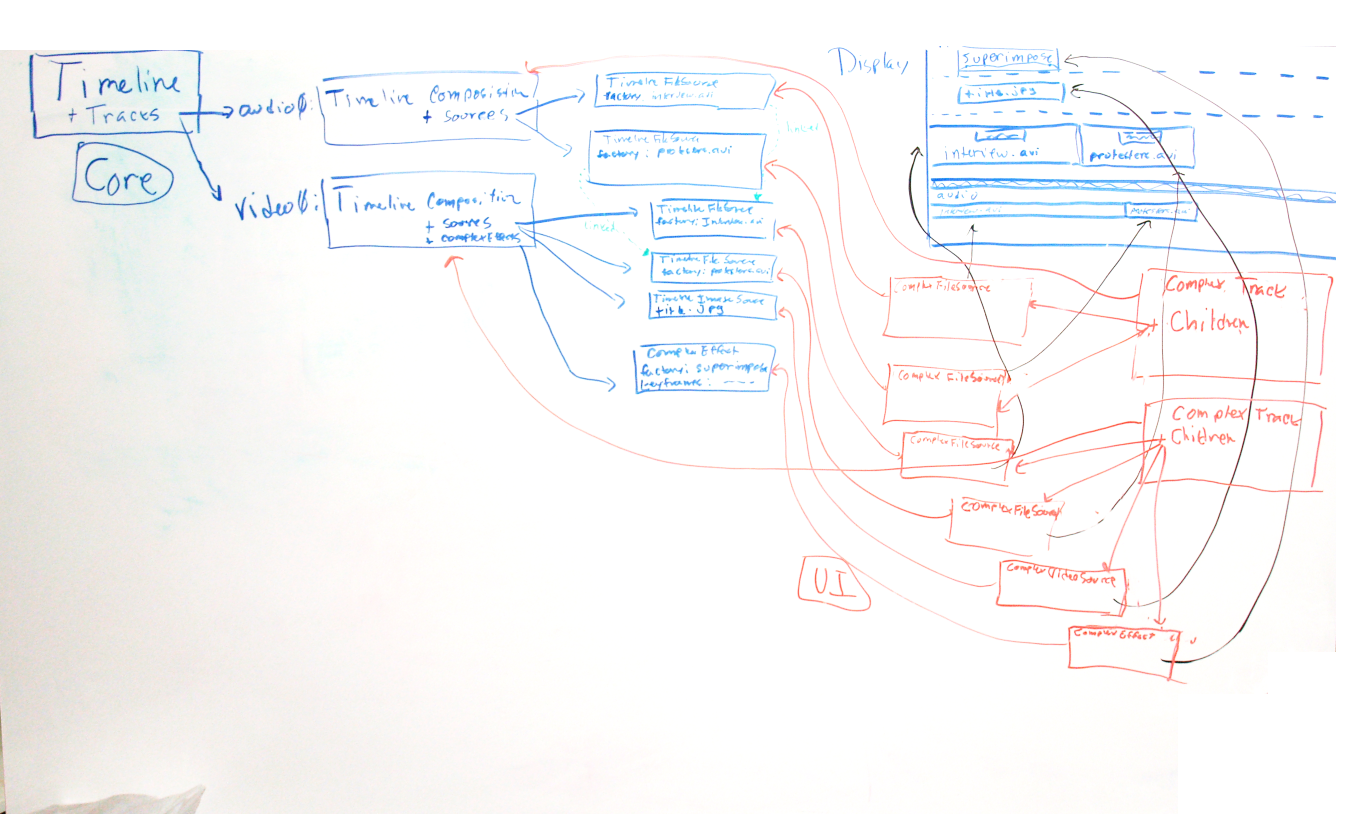 Timeline
+ Tracks
Core
audio0:
Timeline Composistion
+ sources
video0:
Timeline Composition
+ sources
+ complexEffects
Timeline FileSource
factory interview.avi
Timeline FileSource
factory: protesters.avi
linked
Timeline FileSource
factory: Interview.avi
linked
Timeline File Source
factory: protesters.avi
Timeline Image Source
title.jpg
Complex Effect
factory: superimpose
keyframes: ----
Display
Superimpose
title.jpg
interview.avi
protesters.avi
audio
interview.avi
ComplexFileSource
Complex FileSource
ComplexFileSource
ComplexFileSource
ComplexVideoSource
ComplexEffect
Complex Track
+ Children
Complex Track
+ Children
UI